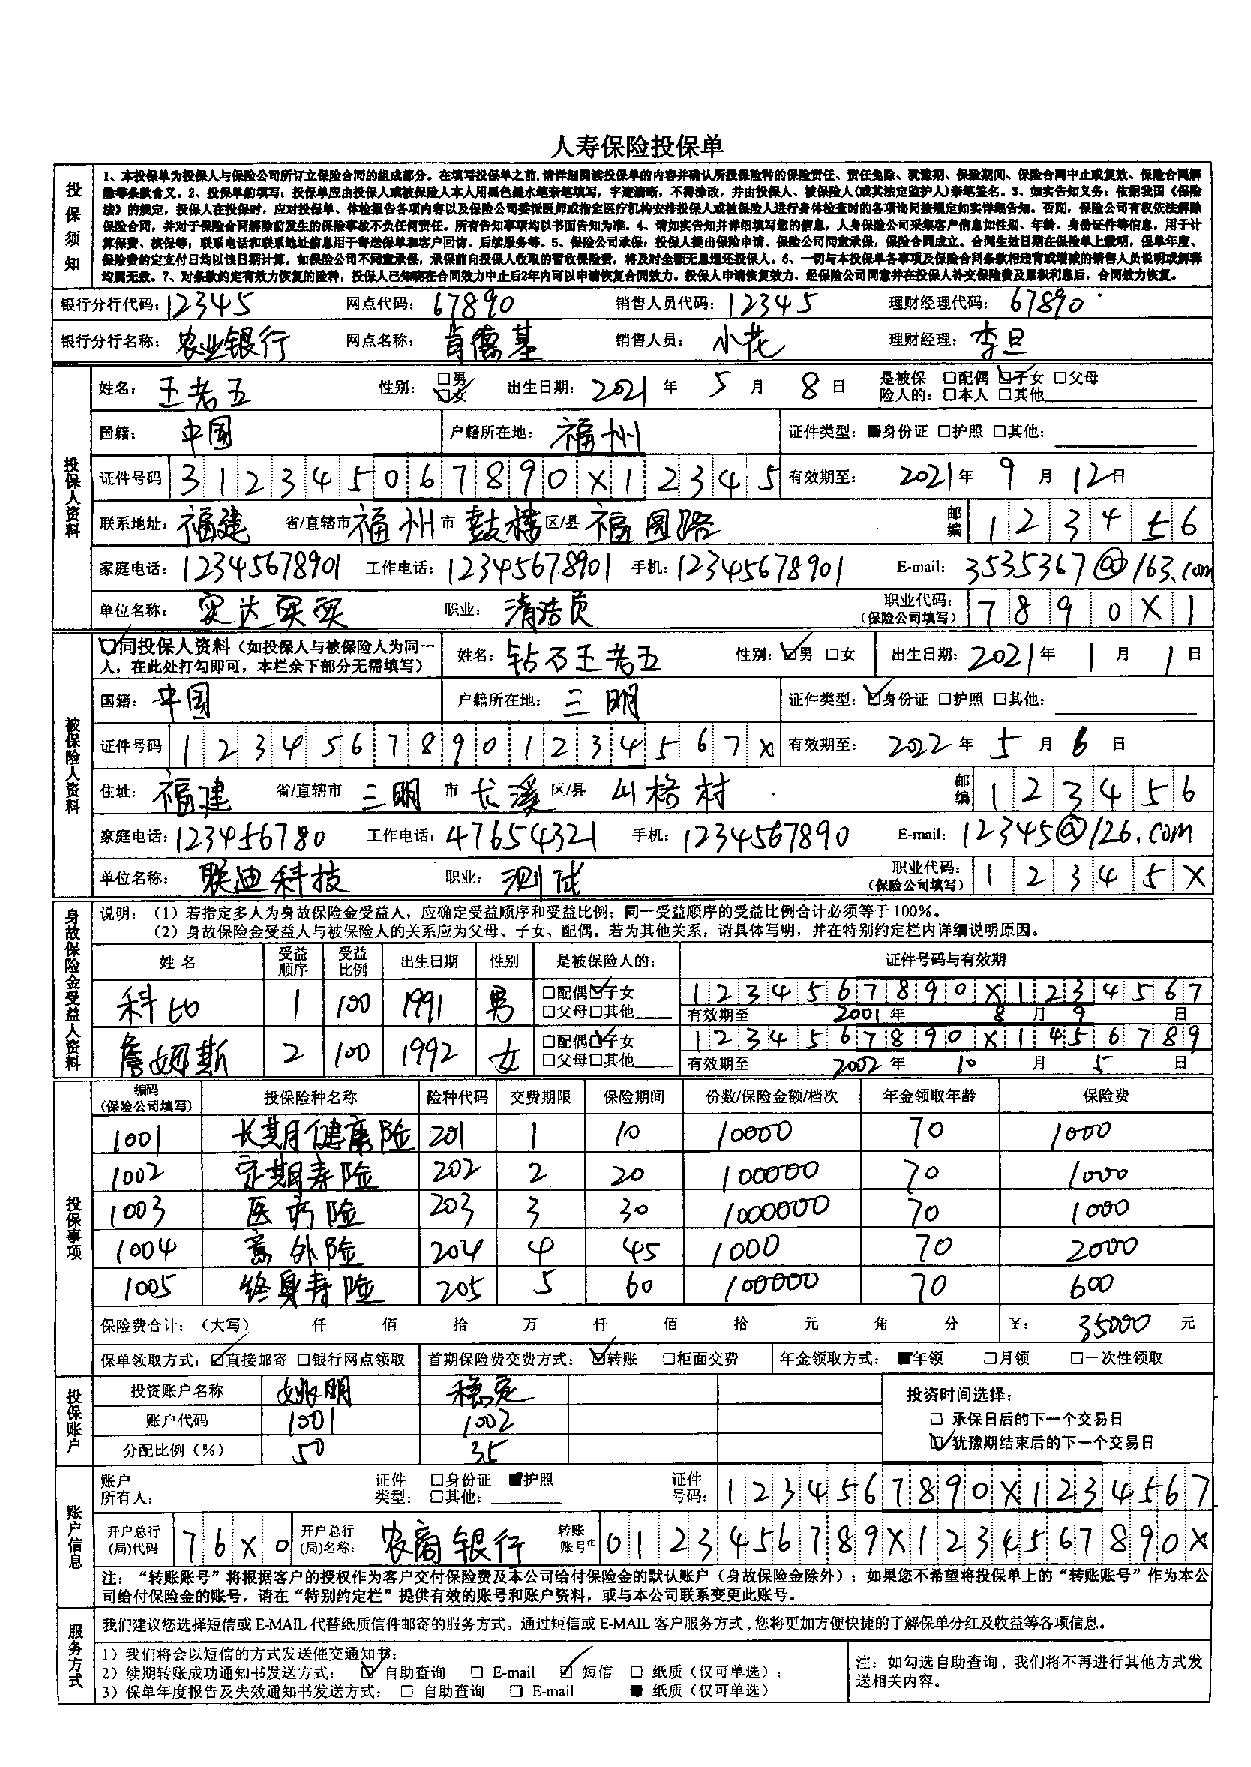 人寿保险投保单
投保须知
1、本投保单为投保人与保险公司所订立保险合同的组成部分。在填写投保单之前,请详细阅读投保单的内容并确认所投保险种的保险责任、责任免除、犹豫期、保险期间、保险合同中止或复效、保险合同解
除等条款含义。2、投保单的填写:投保单应由投保人或被保险人本人用黑色墨水笔亲笔填写,字迹清晰,不得涂改,并由投保人、被保险人(或其法定监护人)亲笔签名。3、如实告知义务:依据我国《保险
法》的规定,投保人在投保时,应对投保单、体检报告各项内容以及保险公司委派医师或指定医疗机构安排投保人或被保险人进行身体检查时的各项询问按规定如实详细告知。否则,保险公司有权依法解除
保险合同,并对于保险合同解除前发生的保险事故不负任何责任。所有告知事项均以书面告知为准。4、请如实告知并详细填写您的信息,人身保险公司采集客户信息如性别、年龄、身份证件等信息,用于计
算保费、核保等;联系电话和联系地址信息用于寄送保单和客户回访、后续服务等。5、保险公司承保:投保人提出保险申请、保险公司同意承保,保险合同成立。合同生效日期在保险单上载明,保单年度、
保险费约定支付日均以该日期计算。如保险公司不同意承保,承保前向投保人收取的暂收保险费,将及时全额无息退还投保人。6、一切与本投保单各事项及保险合同条款相违背或增减的销售人员说明或解释
均属无效。7、对条款约定有效力恢复的险种,投保人已知晓在合同效力中止后2年内可以申请恢复合同效力。投保人申请恢复效力,经保险公司同意并在投保人补交保险费及累积利息后,合同效力恢复。
银行分行代码:12345 网点代码:67890 销售人员代码:12345 理财经理代码:67890
银行分行名称:农业银行 网点名称:肯德基 销售人员:小花 理财经理:李旦
投保人资料
姓名:王老五 性别:□男 ☑女 出生日期:2021年5月8日 是被保 □配偶 ☑子女 □父母
险人的:□本人 □其他
国籍:中国 户籍所在地:福州 证件类型:■身份证 □护照 □其他:
证件号码 312345067890X12345 有效期至:2021年9月12日
联系地址:福建 省/直辖市 福州 市 鼓楼 区/县 福圆路 邮编 123456
家庭电话:12345678901 工作电话:12345678901 手机:12345678901 E-mail:3535367@163.com
单位名称:实达实实 职业:清洁员 职业代码:(保险公司填写) 7890X1
被保险人资料
☑同投保人资料(如投保人与被保险人为同一
人,在此处打勾即可,本栏余下部分无需填写) 姓名:钻石王老五 性别:☑男 □女 出生日期:2021年1月1日
国籍:中国 户籍所在地:三明 证件类型:☑身份证 □护照 □其他:
证件号码 12345678901234567X 有效期至:2022年5月6日
住址:福建 省/直辖市 三明 市 长溪 区/县 山格村 邮编 123456
家庭电话:123456780 工作电话:47654321 手机:1234567890 E-mail:12345@126.com
单位名称:联迪科技 职业:测试 职业代码:(保险公司填写) 12345X
身故保险金受益人资料
说明:(1)若指定多人为身故保险金受益人,应确定受益顺序和受益比例;同一受益顺序的受益比例合计必须等于100%。
(2)身故保险金受益人与被保险人的关系应为父母、子女、配偶。若为其他关系,请具体写明,并在特别约定栏内详细说明原因。
姓名 受益顺序 受益比例 出生日期 性别 是被保险人的: 证件号码与有效期
科比 1 100 1991 男 □配偶☑子女 □父母□其他 1234567890X1234567
有效期至 2001年8月9日
詹姆斯 2 100 1992 女 □配偶☑子女 □父母□其他 1234567890X1456789
有效期至 2002年10月5日
投保事项
编码(保险公司填写) 投保险种名称 险种代码 交费期限 保险期间 份数/保险金额/档次 年金领取年龄 保险费
1001 长期健康险 201 1 10 10000 70 1000
1002 定期寿险 202 2 20 100000 70 1000
1003 医疗险 203 3 30 1000000 70 1000
1004 意外险 204 4 45 1000 70 2000
1005 终身寿险 205 5 60 100000 70 600
保险费合计:(大写) 仟 佰 拾 万 仟 佰 拾 元 角 分 ¥:35000元
保单领取方式:☑直接邮寄 □银行网点领取 首期保险费交费方式:☑转账 □柜面交费 年金领取方式:■年领 □月领 □一次性领取
投保账户
投资账户名称 姚明 稳定 投资时间选择:
账户代码 1001 1002 □ 承保日后的下一个交易日
分配比例(%) 50 35 ☑ 犹豫期结束后的下一个交易日
账户信息
账户所有人: 证件类型:□身份证 ■护照 □其他: 证件号码:1234567890X1234567
开户总行(局)代码 76X0 开户总行(局)名称:农商银行 转账账号: 0123456789X1234567890X
注:“转账账号”将根据客户的授权作为客户交付保险费及本公司给付保险金的默认账户(身故保险金除外);如果您不希望将投保单上的“转账账号”作为本公
司给付保险金的账号,请在“特别约定栏”提供有效的账号和账户资料,或与本公司联系变更此账号。
服务方式
我们建议您选择短信或E-MAIL代替纸质信件邮寄的服务方式。通过短信或E-MAIL客户服务方式,您将更加方便快捷的了解保单分红及收益等各项信息。
1)我们将会以短信的方式发送催交通知书;
2)续期转账成功通知书发送方式:☑ 自助查询 □ E-mail ☑ 短信 □ 纸质(仅可单选);
3)保单年度报告及失效通知书发送方式:□ 自助查询 □ E-mail ■ 纸质(仅可单选)
注:如勾选自助查询,我们将不再进行其他方式发
送相关内容。